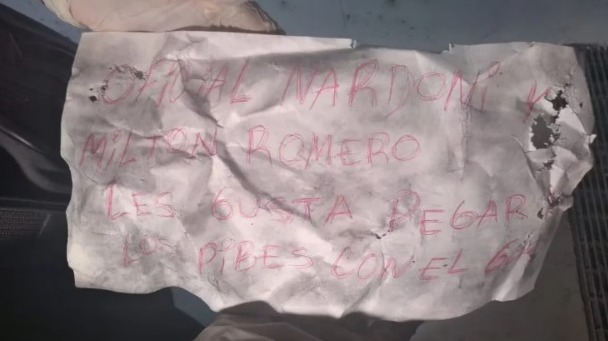 OFICIAL NARDONI Y
MILTON ROMERO
LES GUSTA PEGAR
LOS PIBES CON EL